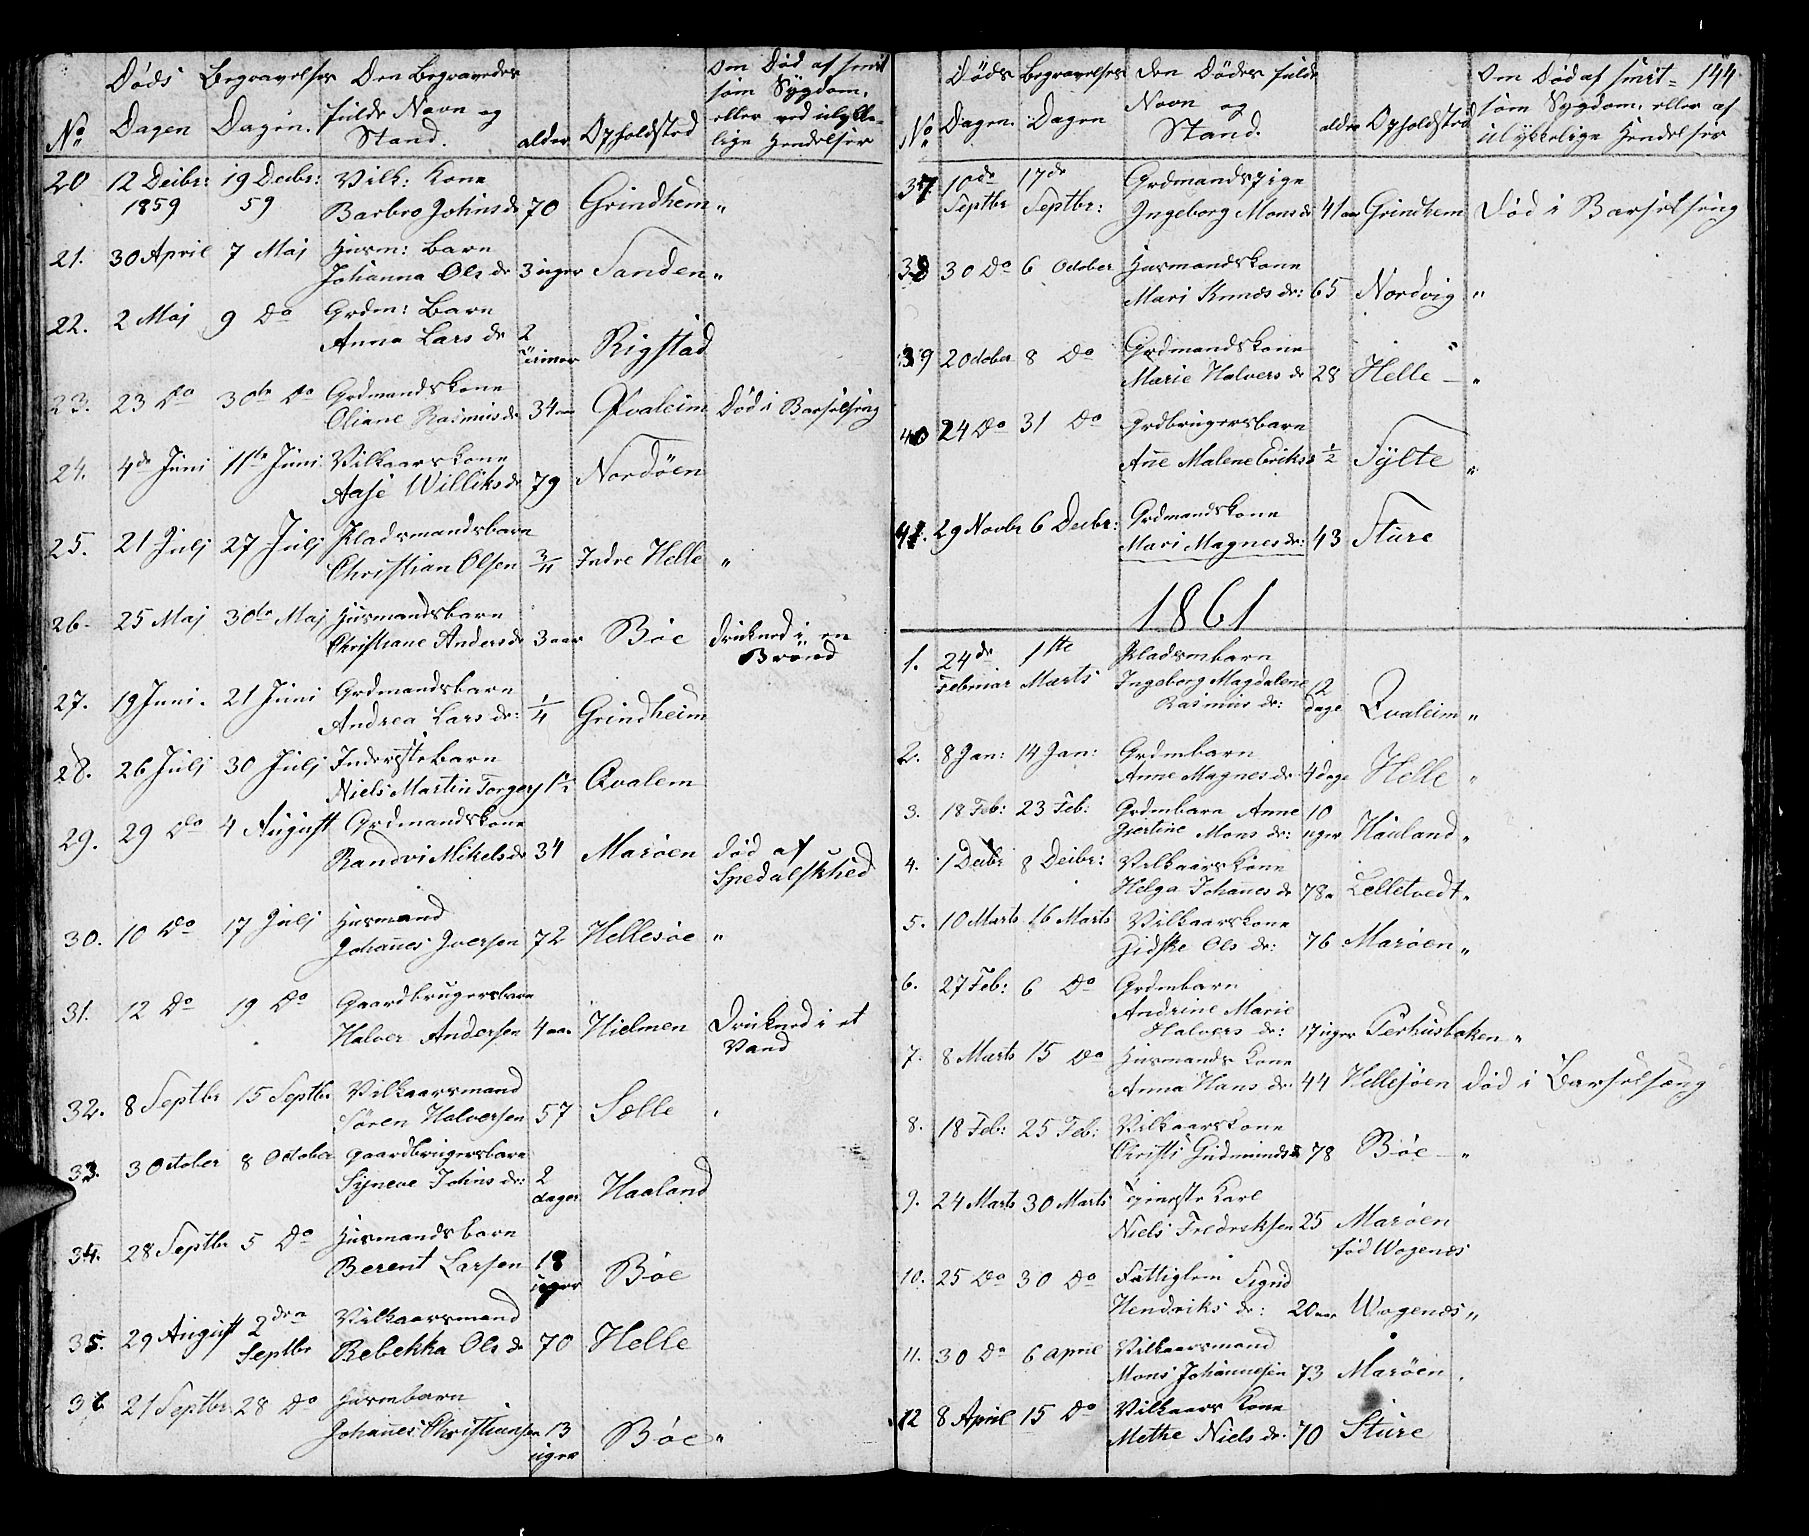 Døds Begravelses Den Begravedes Om Død af smit
No Dagen Dagen. fulde Navn og som Sygdom,
Stand. alder Opholdsted eller ved ulykke-
lige Hendelser
20 12 Decbr: 19 Decbr: Vilk: Kone
1859 59 Barbro Johnsdr 70 Grindhem "
21. 30 April 7 Maj Husm: Barn
Johanna Olsdr 3 uger Sanden "
22. 2 Maj 9 Do Grdm: Barn
Anna Larsdr 2 Rigstad
timer
23. 23 Do 30te Do Grdmandskone
Oliane Rasmusdr 34 aar Qvaleim Død i Barselseng
24. 4de Juni 11te Juni Vilkaarskone
Aase Williksdr 79 Nordøen
25. 21 Julj 27 Julj Pladsmandsbarn
Christian Olsen 3/11 Indre Helle "
26. 25 Maj 30te Maj Husmandsbarn
Christiane Andersdr 3 aar Bøe druknet i en
Brønd
27. 19 Juni. 21 Juni Grdmandsbarn
Andrea Larsdr: 1/4 Grindheim
28. 26 Julj 30 Julj Inderstebarn
Niels Martin Torgers 1 1/2 Qvalem
29. 29 Do 4 August Grdmandskone
Randvi Mikelsdr 34 Marøen død af
Spedalskhed
30. 10 Do 17 Julj Husmand
Johannes Iversen 72 Hellesøe "
31. 12 Do 19 Do Gaardbrugersbarn
Halver Andersen 4 aar Hielmen Druknet i et
Vand
32. 8 Septbr 15 Septbr Vilkaarsmand
Søren Halversen 57 Sælle
33. 3 October 8 October Gaardbrugersbarn
Synneve Johnsdr: 2 Haaland
dager
34. 28 Septbr 5 Do Husmandsbarn
Berent Larsen 18 Bøe
uger
35. 29 August 2den Vilkaarsmand
Septbr Rebekka Olsdr 70 Helle
36 21 Septbr. 28 Do Husmbarn
Johannes Christiansen 13 Bøe "
uger
144
Døds Begravelses Den Dødes fulde Om Død af smit=
No Dagen. Dagen Navn og som Sygdom, eller af
Stand. alder Opholdsted ulykkelige Hendelser
37. 10de 17de Grdmandspige
Septbr Septbr: Ingeborg Monsdr 41 aar Grindhem Død i Barselseng
38 30 Do 6 October Husmandskone
Mari Knudsdr: 65 Nordvig "
39 2 October 8 Do Grdmandskone
Marie Halversdr 28 Helle — "
40 24 Do 31 Do Grdbrugersbarn
Anne Malene Eriks 1/2 Sylte "
41. 29 Novbr 6 Decbr: Grdmandskone
Mari Magnesdr: 43 Sture
1861
1. 24de 1ste Pladsmbarn
Februar Marts Ingeborg Magdalene 12
Rasmusdr: dage Qvaleim "
2. 8 Jan: 14 Jan: Grdmbarn
Anne Magnesdr 4 dage Helle "
3. 18 Feb: 23 Feb: Grdmbarn Anne 10
Gjertine Monsdr: uger Haaland "
4. 1 Decbr 8 Decbr: Vilkaarskone
Helga Johannesdr 78 a Lelletvedt "
5. 10 Marts 16 Marts Vilkaarskone
Gidske Olsdr: 76 Marøen "
6. 27 Feb: 6 Do Grdmbarn
Andrine Marie
Halversdr: 17 uger Perhusbaken "
7. 8 Marts 15 Do Husmands Kone
Anna Hansdr 44 Hellesøen død i Barselsæng
8. 18 Feb: 25 Feb: Vilkaarskone
Christi Gudmunds 78 Bøe — "
9. 24 Marts 30 Marts Tjeneste Karl
Niels Fredriksen 25 Marøen
fød Wogenæs
10. 25 Do 30 Do Fattiglem Sigrid
Hendriksdr: 20 aar Wogenæs "
11. 30 Do 6 April Vilkaarsmand
Mons Johannesen 73 Marøen.
12 8 April 15 Do Vilkaars Kone
Methe Nielsdr. 70 Sture